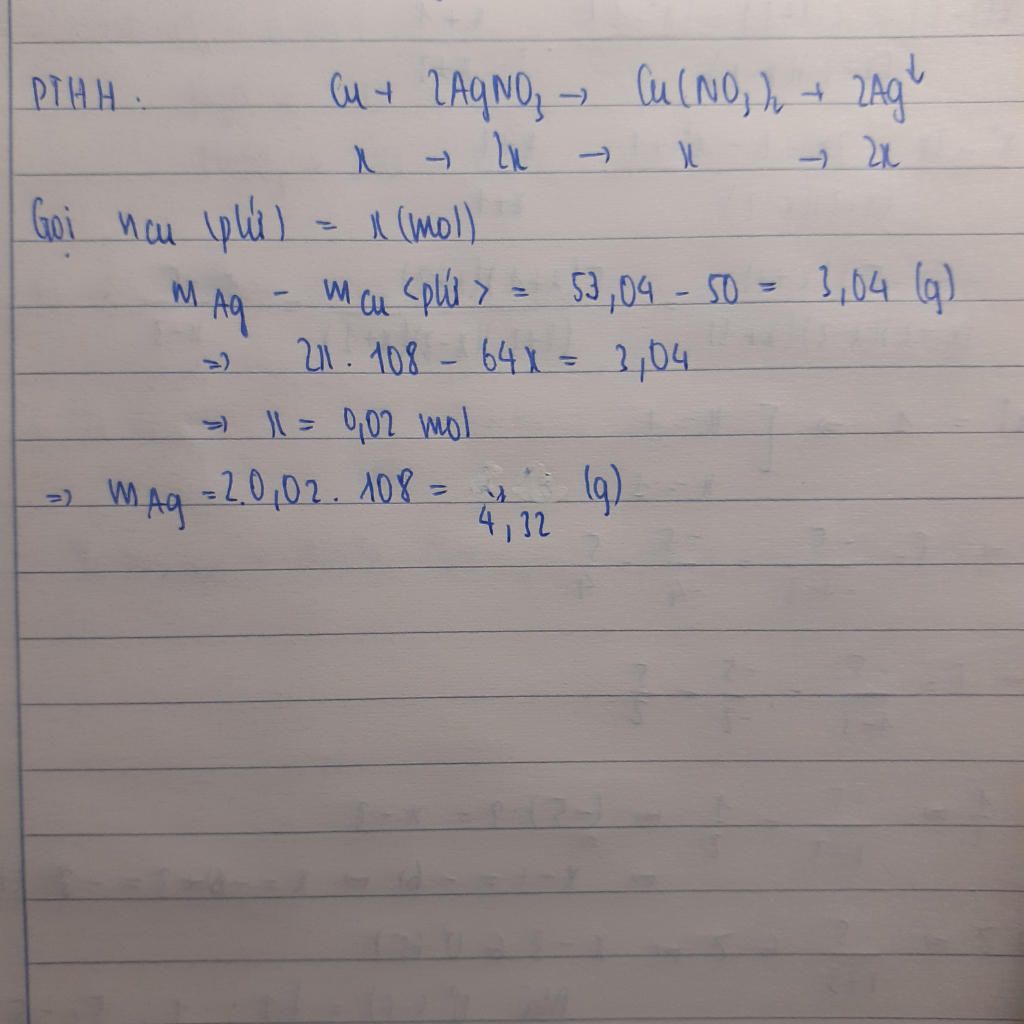 PTHH: Cu + 2AgNO3 → Cu(NO3)2 + 2Ag↓
x → 2x → x → 2x
Gọi nCu (pứ) = x (mol)
mAg - mCu <pứ> = 53,04 - 50 = 3,04 (g)
=> 2x. 108 - 64x = 3,04
=> x = 0,02 mol
=> mAg = 2.0,02. 108 = (g)
4,32